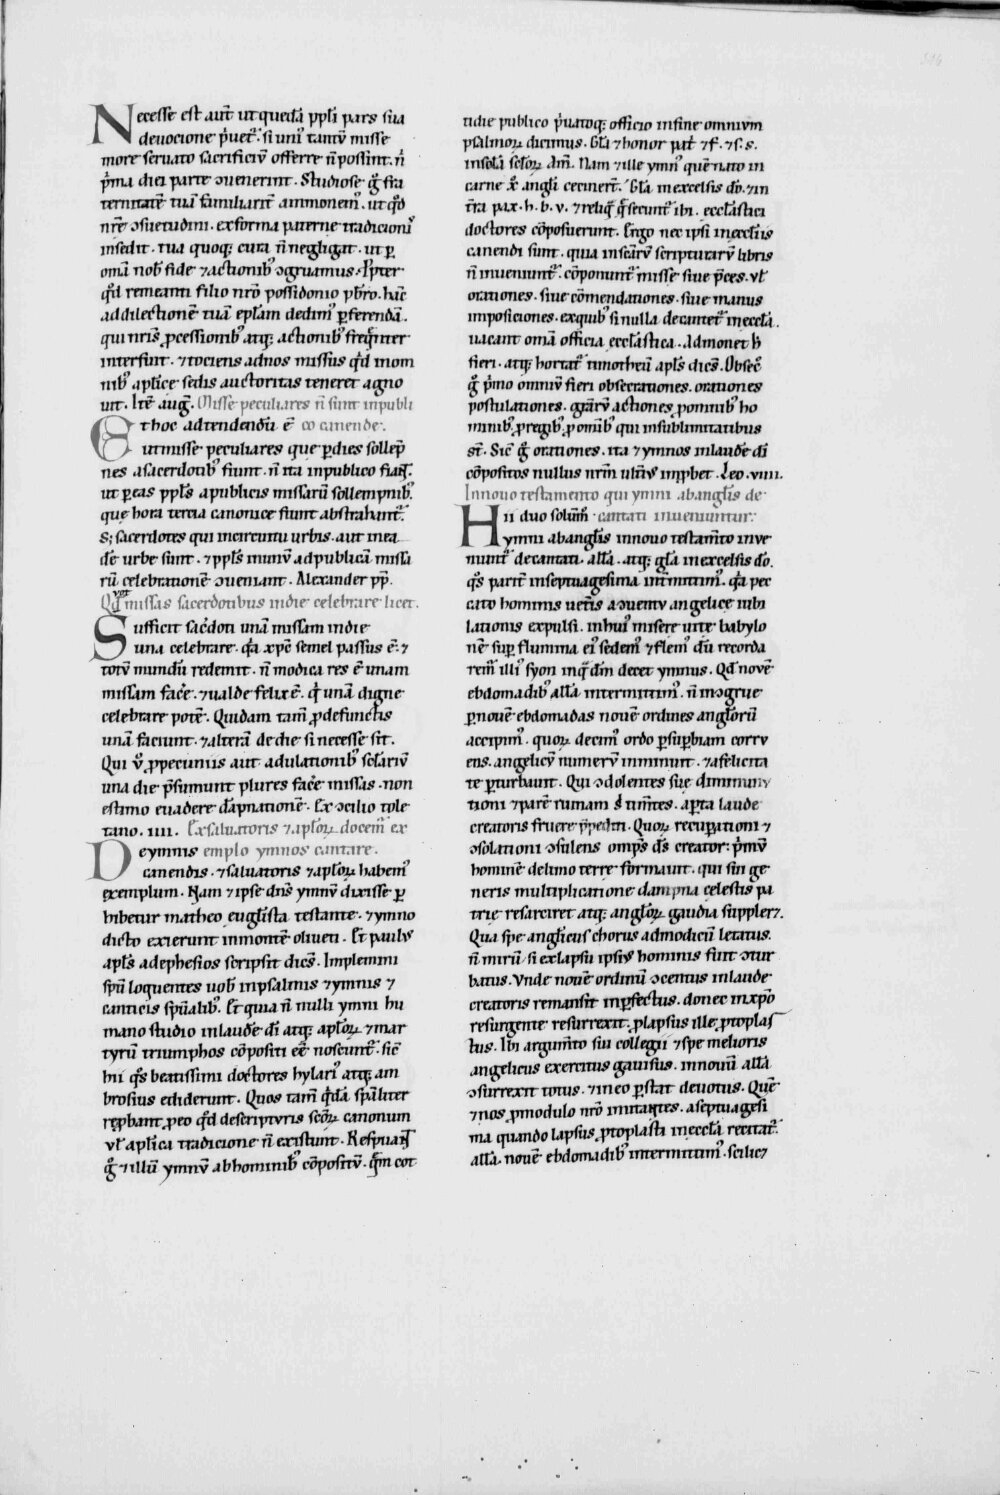 Necesse est aut̄ ut quedā ppl̄i pars sua
deuocione p̄uet̄. si uni᷒ tantū misse
more seruato sacrificiū offerre n̄ possint. n̄
p̄ma diei parte ↄuenerint. Studiose g̊ fra
ternitatē tuā familiarit̄ ammonem᷒. ut qd̄
nr̄e ↄsuetudini. ex forma paterne tradicioni᷒
insedit. tua quoq; cura n̄ negligat. ut ꝑ
om̄a nob᷒ fide ⁊ actionib᷒ ↄgruamus. Ppter
qd̄ remeanti filio nr̄o possidonio pb̄ro. hāc
ad dilectionē tuā epl̄am dedim᷒ ꝑferendā.
qui nr̄is ꝓcessionib᷒ atq; actionib᷒ freq̄nter
interfuit. ⁊ tociens ad nos missus qd̄ in om
nib᷒ apl̄ice sedis auctoritas teneret agno
uit. Itē auḡ. Misse peculiares n̄ sunt in publi
Et hoc adtendendū ē co canende.
ut misse peculiares que ꝑ dies sollep̄
nes a sacerdotib᷒ fiunt. n̄ ita in publico fiant.
ut ꝑ eas ppl̄s a publicis missarū sollempnib᷒.
que hora tercia canonice fiunt abstrahant᷒.
S; sacerdotes qui in circuitu urbis. aut in ea
dē urbe sunt. ⁊ ppl̄s in unū ad publicā missa
rū celebrationē ↄueniant. Alexander pp̄.
Qd̄ quot missas sacerdotibus in die celebrare licet.
Sufficit sac̄doti unā missam in die
una celebrare. q̄a xp̄c semel passus ē. ⁊
totū mundū redemit. n̄ modica res ē unam
missam fac̄e. ⁊ ualde felix ē. q̄ unā digne
celebrare potē. Quidam tam̄ ꝓ defunctis
unā faciunt. ⁊ alterā de die si necesse sit.
Qui ū ꝓ pecuniis aut adulationib᷒ sclariū
una die p̄sumunt plures fac̄e missas. non
estimo euadere dāpnationē. Ex ↄcilio tole
tano. IIII. Ex saluatoris ⁊ aplōꝝ docem᷒ ex
De ymnis emplo ymnos cantare.
canendis. ⁊ saluatoris ⁊ aplōꝝ habem᷒
exemplum. Nam ⁊ ipse dn̄s ymnū dixisse ꝑ
hibetur matheo eug̅lista testante. ⁊ ymno
dicto exierunt in montē oliueti. Et paulus
apl̄s ad ephesios scripsit dicēs. Implemini
spū loquentes uob̄ in psalmis ⁊ ymnis ⁊
canticis spūalib᷒. Et quia n̄ nulli ymni hu
mano studio in laudē dī atq; aplōꝝ ⁊ mar
tyrū triumphos cōpositi eē noscunt᷒. sic̄
hii q̊s beatissimi doctores hylari᷒ atq; am
brosius ediderunt. Quos tam̄ q̄dā spāliter
reꝓbant ꝓ eo qd̄ de scripturis sc̄oꝝ canonum
ul̄ apl̄ica tradicione n̄ existunt. Respuant
g̊ ⁊ illū ymnū ab hominib᷒ cōpositū. q̄m cot
tidie publico p̄uatoq; officio in fine omnium
psalmoꝝ dicimus. Gl̄a ⁊ honor pat̄ ⁊ f. ⁊ s. s.
in scl̄a scl̄oꝝ am̄. Nam ⁊ ille ymn᷒ quē nato in
carne x̄o angli cecinert̄. Gl̄a in excelsis dō. ⁊ in
tr̄a pax. h. b. v. ⁊ reliq̄ q̄ secunt᷒ ibi. eccl̄astici
doctores cōposuerunt. Ergo nec ipsi in eccl̄iis
canendi sunt. quia in scārū scripturarū libris
n̄ inueniunt᷒. cōponunt᷒ misse siue p̄ces. ul̄
orationes. siue cōmendationes. siue manus
imposiciones. ex quib᷒ si nulla decantet᷒ in eccl̄a.
uacant om̄a officia eccl̄astica. Admonet h̄
fieri. atq; hortat᷒ timotheū apl̄s dicēs. Obsec̊
g̊ p̄mo omniū fieri obsecrationes. orationes
postulationes. grārū actiones ꝓ omnib᷒ ho
minib᷒. ꝓ regib᷒. ꝓ omib᷒ qui in sublimitatibus
st̄. Sic̄ g̊ orationes. ita ⁊ ymnos in laudē dī
cōpositos nullus nrm̄ ultīus improbet. Leo. viiii.
In nouo testamento qui ymni ab angl̄is de
Hii duo solum̄ cantati inueniuntur.
ymni ab angl̄is in nouo testam̄to inue
niunt᷒ decantati. all̄a. atq; gl̄a in excelsis dō.
q̊s parit̄ in septuagesima intm̄ittim᷒. q̄a pec
cato hominis uet̄is a ↄuentu angelice iubi
lationis expulsi. in hui᷒ misere uite babylo
nē suꝑ flumina ei᷒ sedem᷒ ⁊ flem᷒ dū recorda
rem᷒ illi᷒ syon in q̄ dm̄ decet ymnus. Qd̄ nouē
ebdomadib᷒ all̄a intermittim᷒. n̄ incↄgrue
ꝑ nouē ebdomadas nouē ordines angl̄orū
accipim᷒. quoꝝ decim᷒ ordo ꝑ suꝑbiam corru
ens. angelicū numerū inminuit. ⁊ a felicita
te ꝑturbauit. Qui ↄdolentes sue diminuti
tioni ⁊ parē ruinam s̄ timētes. aꝑta laude
creatoris fruere p̄pediti. Quoꝝ recuꝑationi ⁊
ↄsolationi ↄsulens omp̄s d̄s creator. p̄mū
hominē de limo terre formauit. qui sui ge
neris multiplicatione dampna celestis pa
trie resarciret atq; angl̄oꝝ gaudia suppler⁊.
Qua spe angl̄icus chorus ad modicū letatus.
n̄ mirū si ex lapsu ipsius hominis fuit ↄtur
batus. Vnde nouē ordinū ↄcentus in laude
creatoris remansit inꝑfectus. donec in xp̄o
resurgente resurrexit. ꝓlapsus ille ꝓtoplas
tus. Ibi argum̄to sui collegii ⁊ spe melioris
angelicus exercitus gauisus. in nouū all̄a
ↄsurrexit totus. ⁊ in eo ꝑstat deuotus. Quē
⁊ nos ꝓ modulo nr̄o imitantes. a septuagesi
ma quando lapsus ꝓtoplasti in eccl̄a recitat᷒.
all̄a. nouē ebdomadib᷒ intermittim᷒. scilic⁊